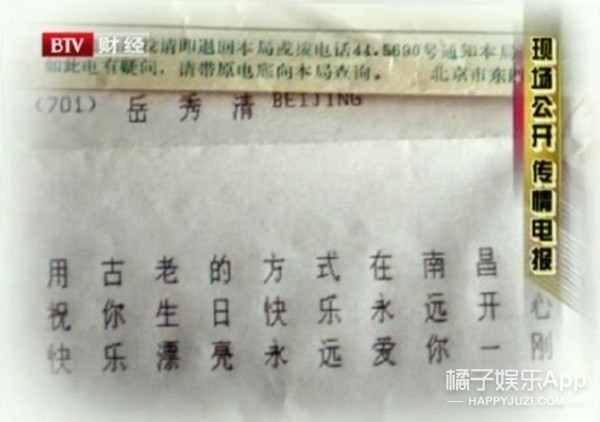 BTV 财经
位请即退回本局或拨电话44.5690号通知本局
如此电有疑问，请带原电底向本局查询。 北京市东
(701) 岳秀清 BEIJING
用古老的方式在南昌
祝你生日快乐永远开心
快乐漂亮永远爱你一刚
现场公开 传情电报
橘子娱乐App
—HAPPYJUZI.COM—